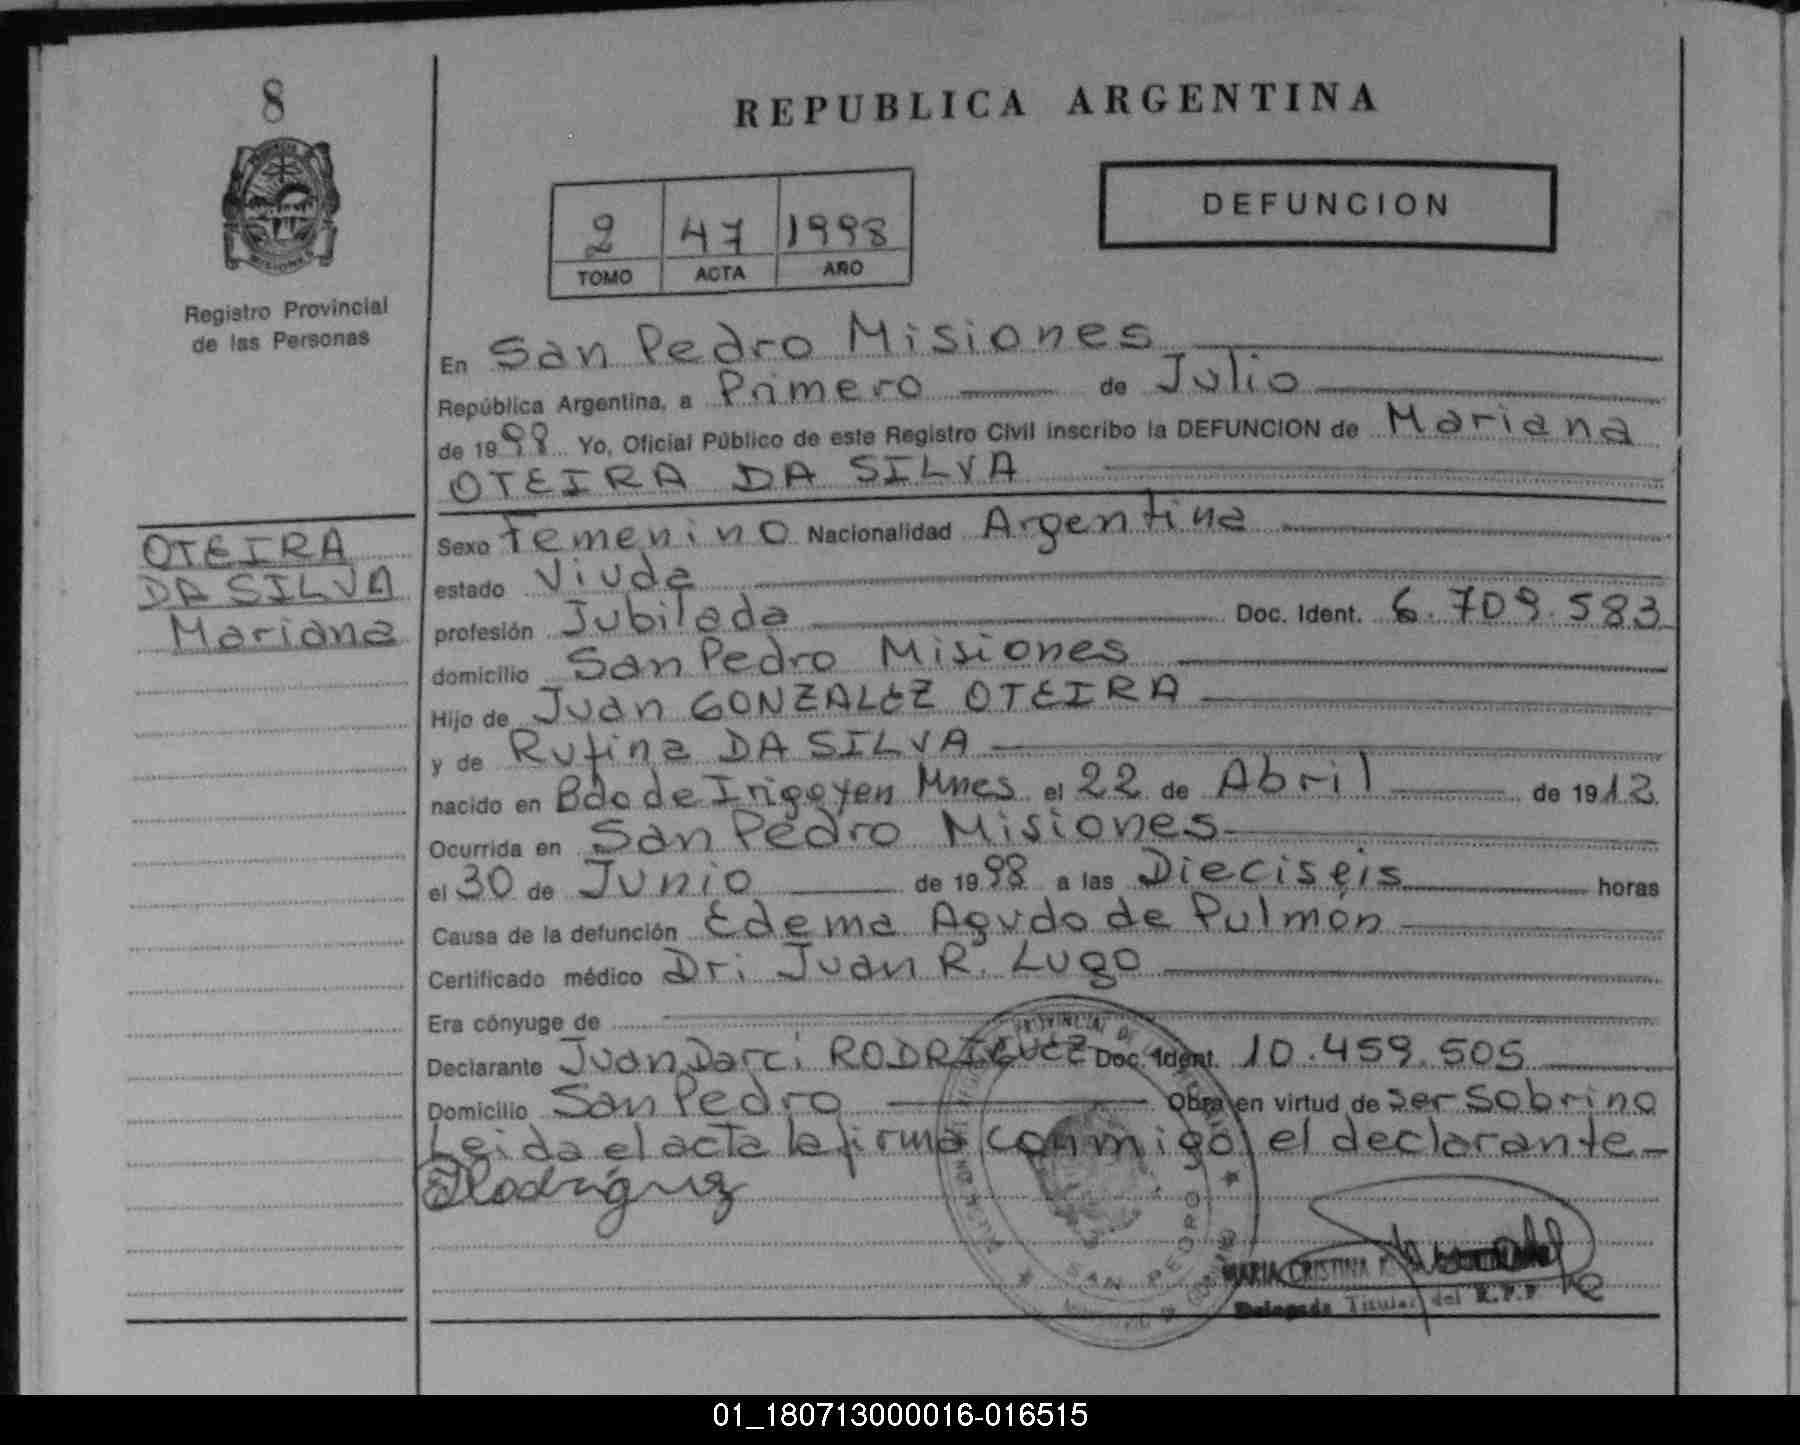 8
REPUBLICA ARGENTINA
DEFUNCION
2 47 1998
TOMO ACTA AÑO
Registro Provincial
de las Personas
En San Pedro Misiones
República Argentina, a Primero de Julio
de 1998 Yo, Oficial Público de este Registro Civil inscribo la DEFUNCION de Mariana
OTEIRA DA SILVA
OTEIRA
DA SILVA
Mariana
Sexo Femenino Nacionalidad Argentina
estado Viuda
profesión Jubilada Doc. Ident. 6.709.583
domicilio San Pedro Misiones
Hijo de Juan GONZALEZ OTEIRA
y de Rufina DA SILVA
nacido en Bdo de Irigoyen Mnes el 22 de Abril de 1912
Ocurrida en San Pedro Misiones
el 30 de Junio de 1998 a las Dieciseis horas
Causa de la defunción Edema Agudo de Pulmón
Certificado médico Dr: Juan R. Lugo
Era cónyuge de
Declarante Juan Darci RODRIGUEZ Doc. Ident. 10.459.505
Domicilio San Pedro Obra en virtud de ser Sobrino
Leida el acta la firma conmigo el declarante
JRodriguez
SAN PEDRO
MARIA CRISTINA
Delegada Titular del R.P.P
01_180713000016-016515